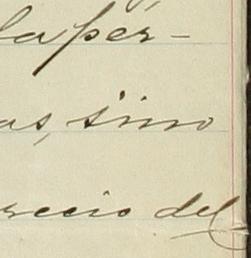 la per-
as, sino
recio del